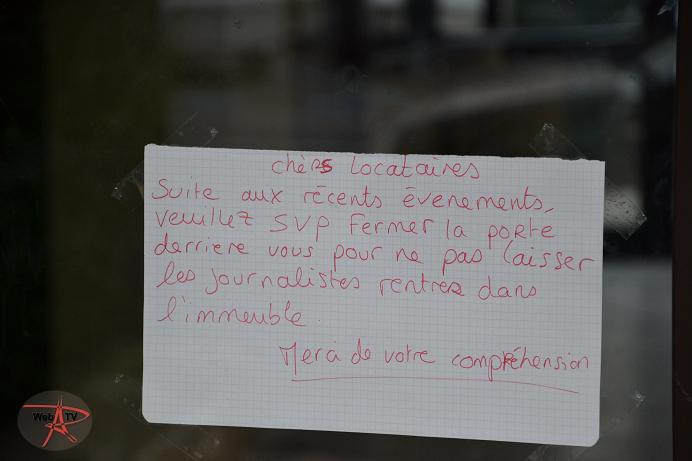 chèrs Locataires
Suite aux récents évenements,
veuillez SVP Fermer la porte
derriere vous pour ne pas laisser
les journalistes rentrer dans
l'immeuble.
Merci de votre compréhension
Web TV